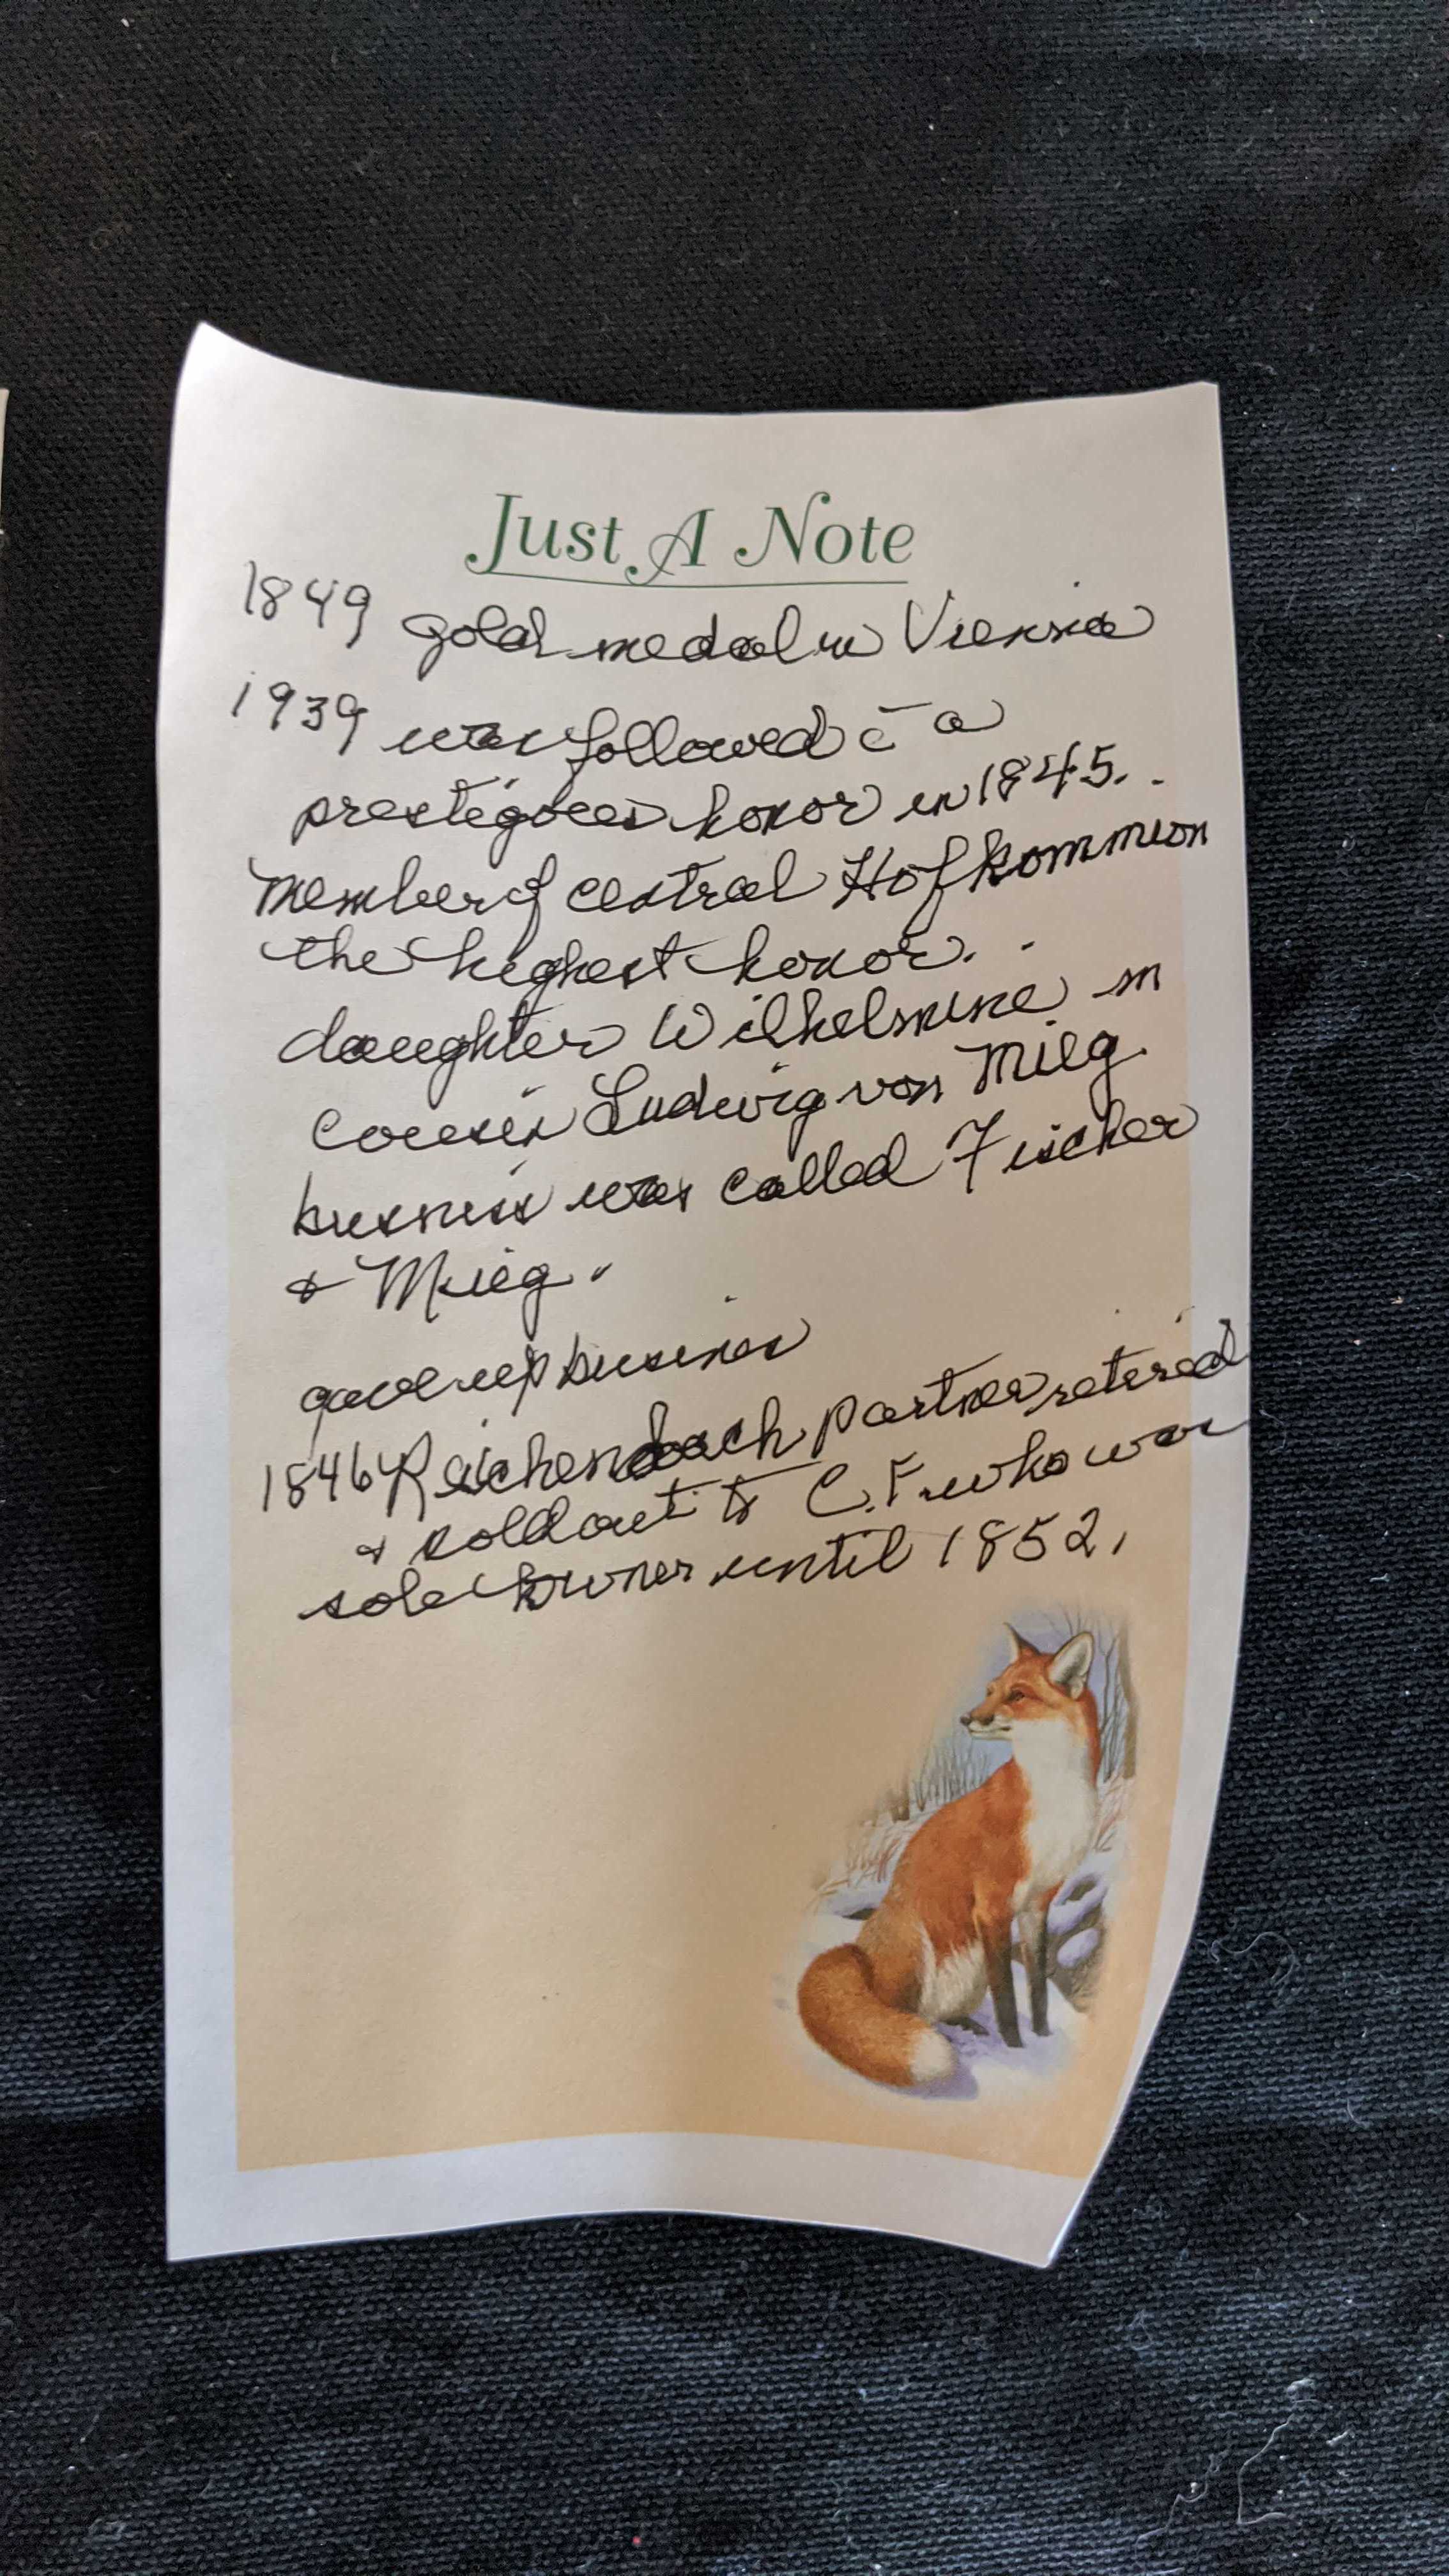 Just A Note
1849 gold medal in Vienna
1939 was followed c̄ a
prestigous honor in 1845.
member of central Hofkommion
the highest honor.
daughter Wilhelmine m
cousin Ludwig von Mieg
business was called Fischer
& Mieg.
gave up business
1846 Reichenbach partner retired
& sold out to C.F. who was
sole owner until 1852.